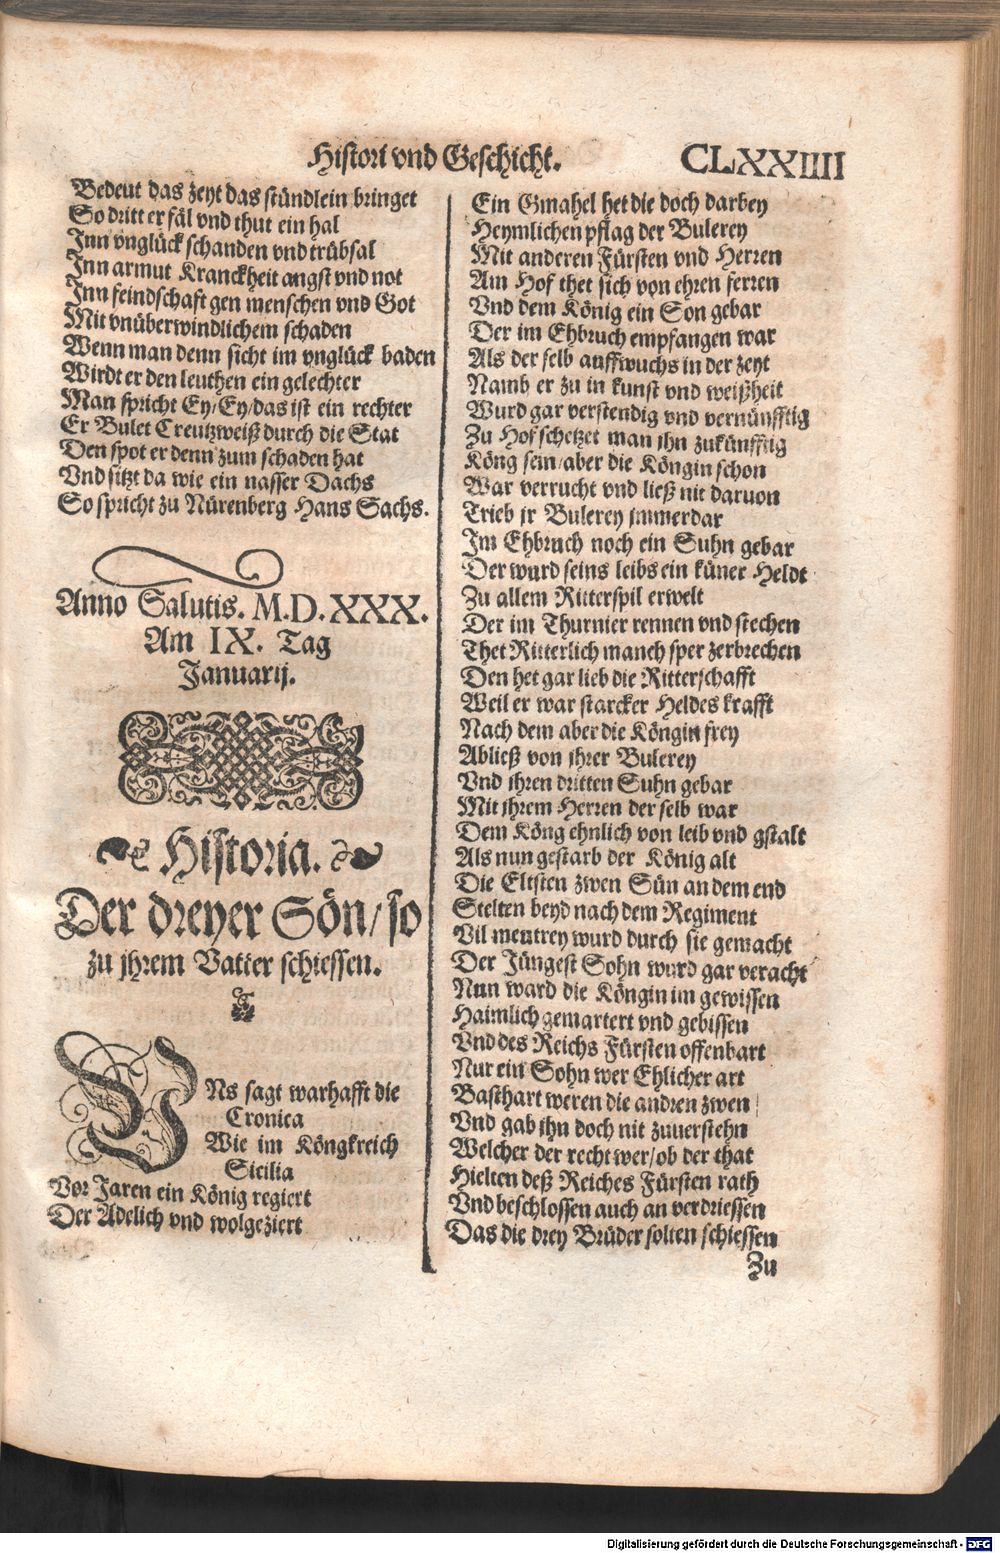 Histori vnd Geschicht.
CLXXIIII
Bedeut das zeyt das stündlein bringet
So dritt er fäl vnd thut ein hal
Inn vnglück schanden vnd trübsal
Inn armut Kranckheit angst vnd not
Inn feindschafft gen menschen vnd Got
Mit vnüberwindlichem schaden
Wenn man denn sicht im vnglück baden
Wirdt er den leuthen ein gelechter
Man spricht Ey/Ey/das ist ein rechter
Er Bulet Creutzweiß durch die Stat
Den spot er denn zum schaden hat
Vnd sitzt da wie ein nasser Dachs
So spricht zu Nürenberg Hans Sachs.
Anno Salutis. M.D.XXX.
Am IX. Tag
Januarij.
Historia.
Der dreyer Sön/so
zu jhrem Vatter schiessen.
VNs sagt warhafft die
Cronica
Wie im Köngkreich
Sicilia
Vor Jaren ein König regiert
Der Adelich vnd wolgeziert
Ein Gmahel het die doch darbey
Heymlichen pflag der Bulerey
Mit anderen Fürsten vnd Herren
Am Hof thet sich von ehren ferren
Vnd dem König ein Son gebar
Der im Ehbruch empfangen war
Als der selb auffwuchs in der zeyt
Namb er zu in kunst vnd weißheit
Wurd gar verstendig vnd vernünfftig
Zu Hof schetzet man jhn zukünfftig
Köng sein/aber die Köngin schon
War verrucht vnd ließ nit daruon
Trieb jr Bulerey jmmerdar
Im Ehbruch noch ein Suhn gebar
Der wurd seins leibs ein küner Heldt
Zu allem Ritterspil erwelt
Der im Thurnier rennen vnd stechen
Thet Ritterlich manch sper zerbrechen
Den het gar lieb die Ritterschafft
Weil er war starcker Heldes krafft
Nach dem aber die Köngin frey
Abließ von jhrer Bulerey
Vnd jhren dritten Suhn gebar
Mit jhrem Herren der selb war
Dem Köng ehnlich von leib vnd gstalt
Als nun gestarb der König alt
Die Eltsten zwen Sün an dem end
Stelten beyd nach dem Regiment
Vil meutrey wurd durch sie gemacht
Der Jüngest Sohn wurd gar veracht
Nun ward die Köngin im gewissen
Haimlich gemartert vnd gebissen
Vnd des Reichs Fürsten offenbart
Nur ein Sohn wer Ehlicher art
Basthart weren die andren zwen
Vnd gab jhn doch nit zuuerstehn
Welcher der recht wer/ob der that
Hielten deß Reiches Fürsten rath
Vnd beschlossen auch an verdriessen
Das die drey Brüder solten schiessen
Zu
Digitalisierung gefördert durch die Deutsche Forschungsgemeinschaft - DFG